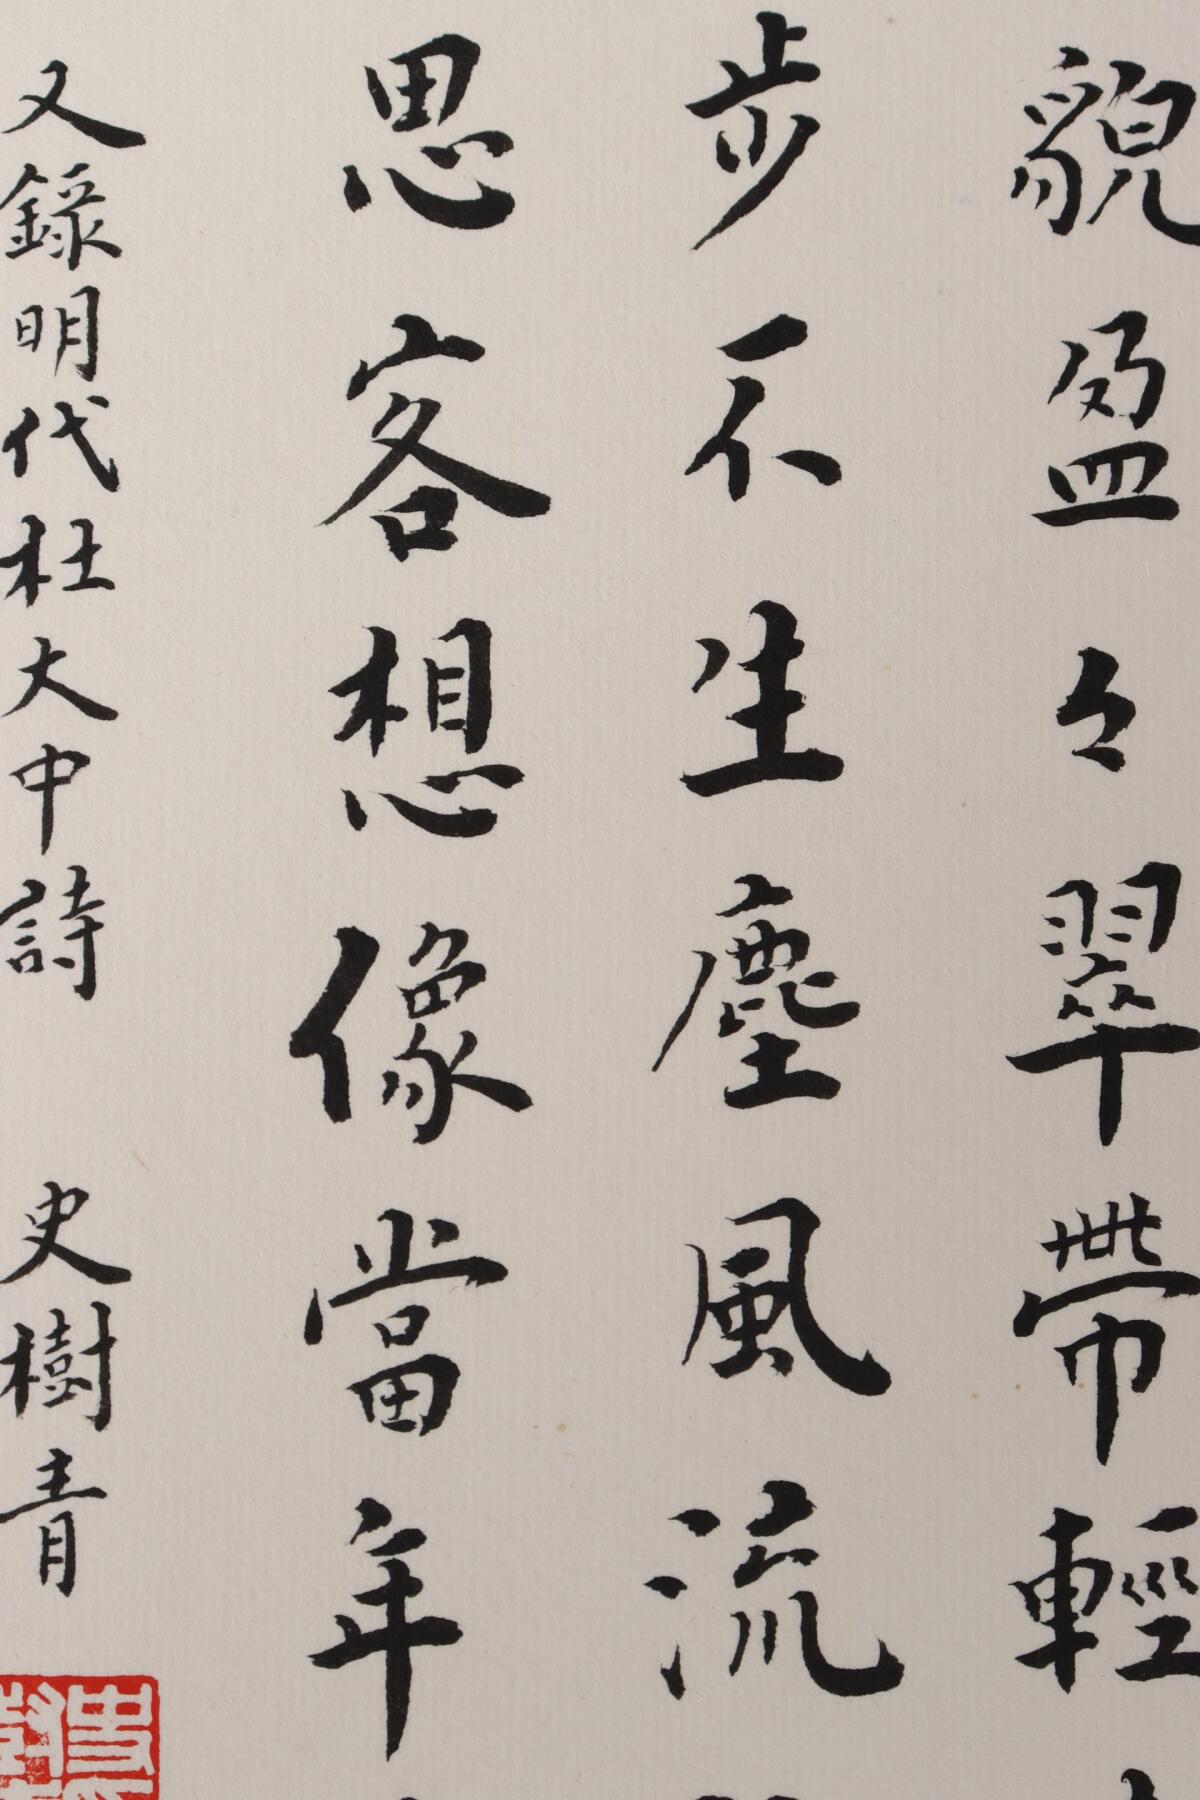 貌盈々翠帶輕
步不生塵風流
思客想像當年
又錄明代杜大中詩 史樹青